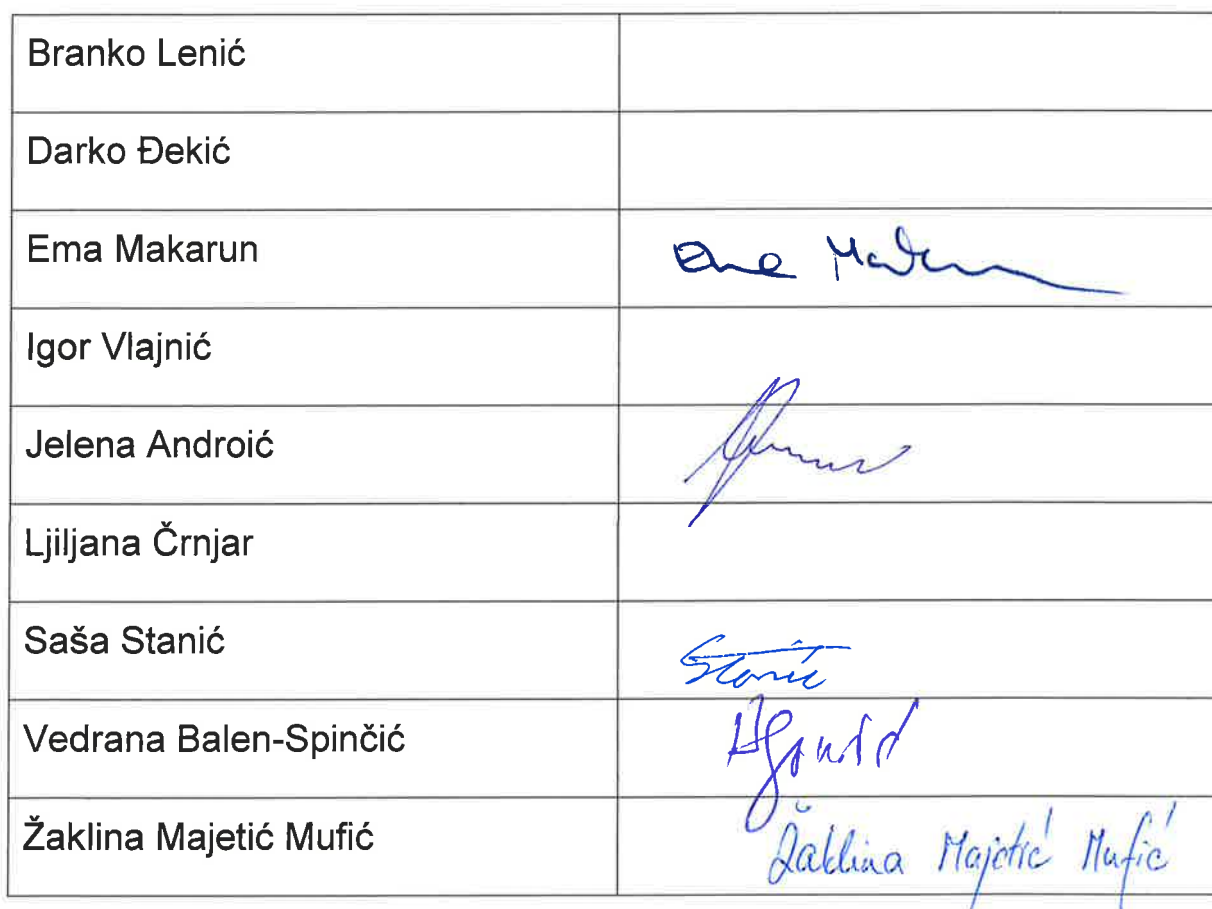 Branko Lenić
Darko Đekić
Ema Makarun
Ema Makarun
Igor Vlajnić
Jelena Androić
Ljiljana Črnjar
Saša Stanić
Stanić
Vedrana Balen-Spinčić
Žaklina Majetić Mufić
Žaklina Majetić Mufić